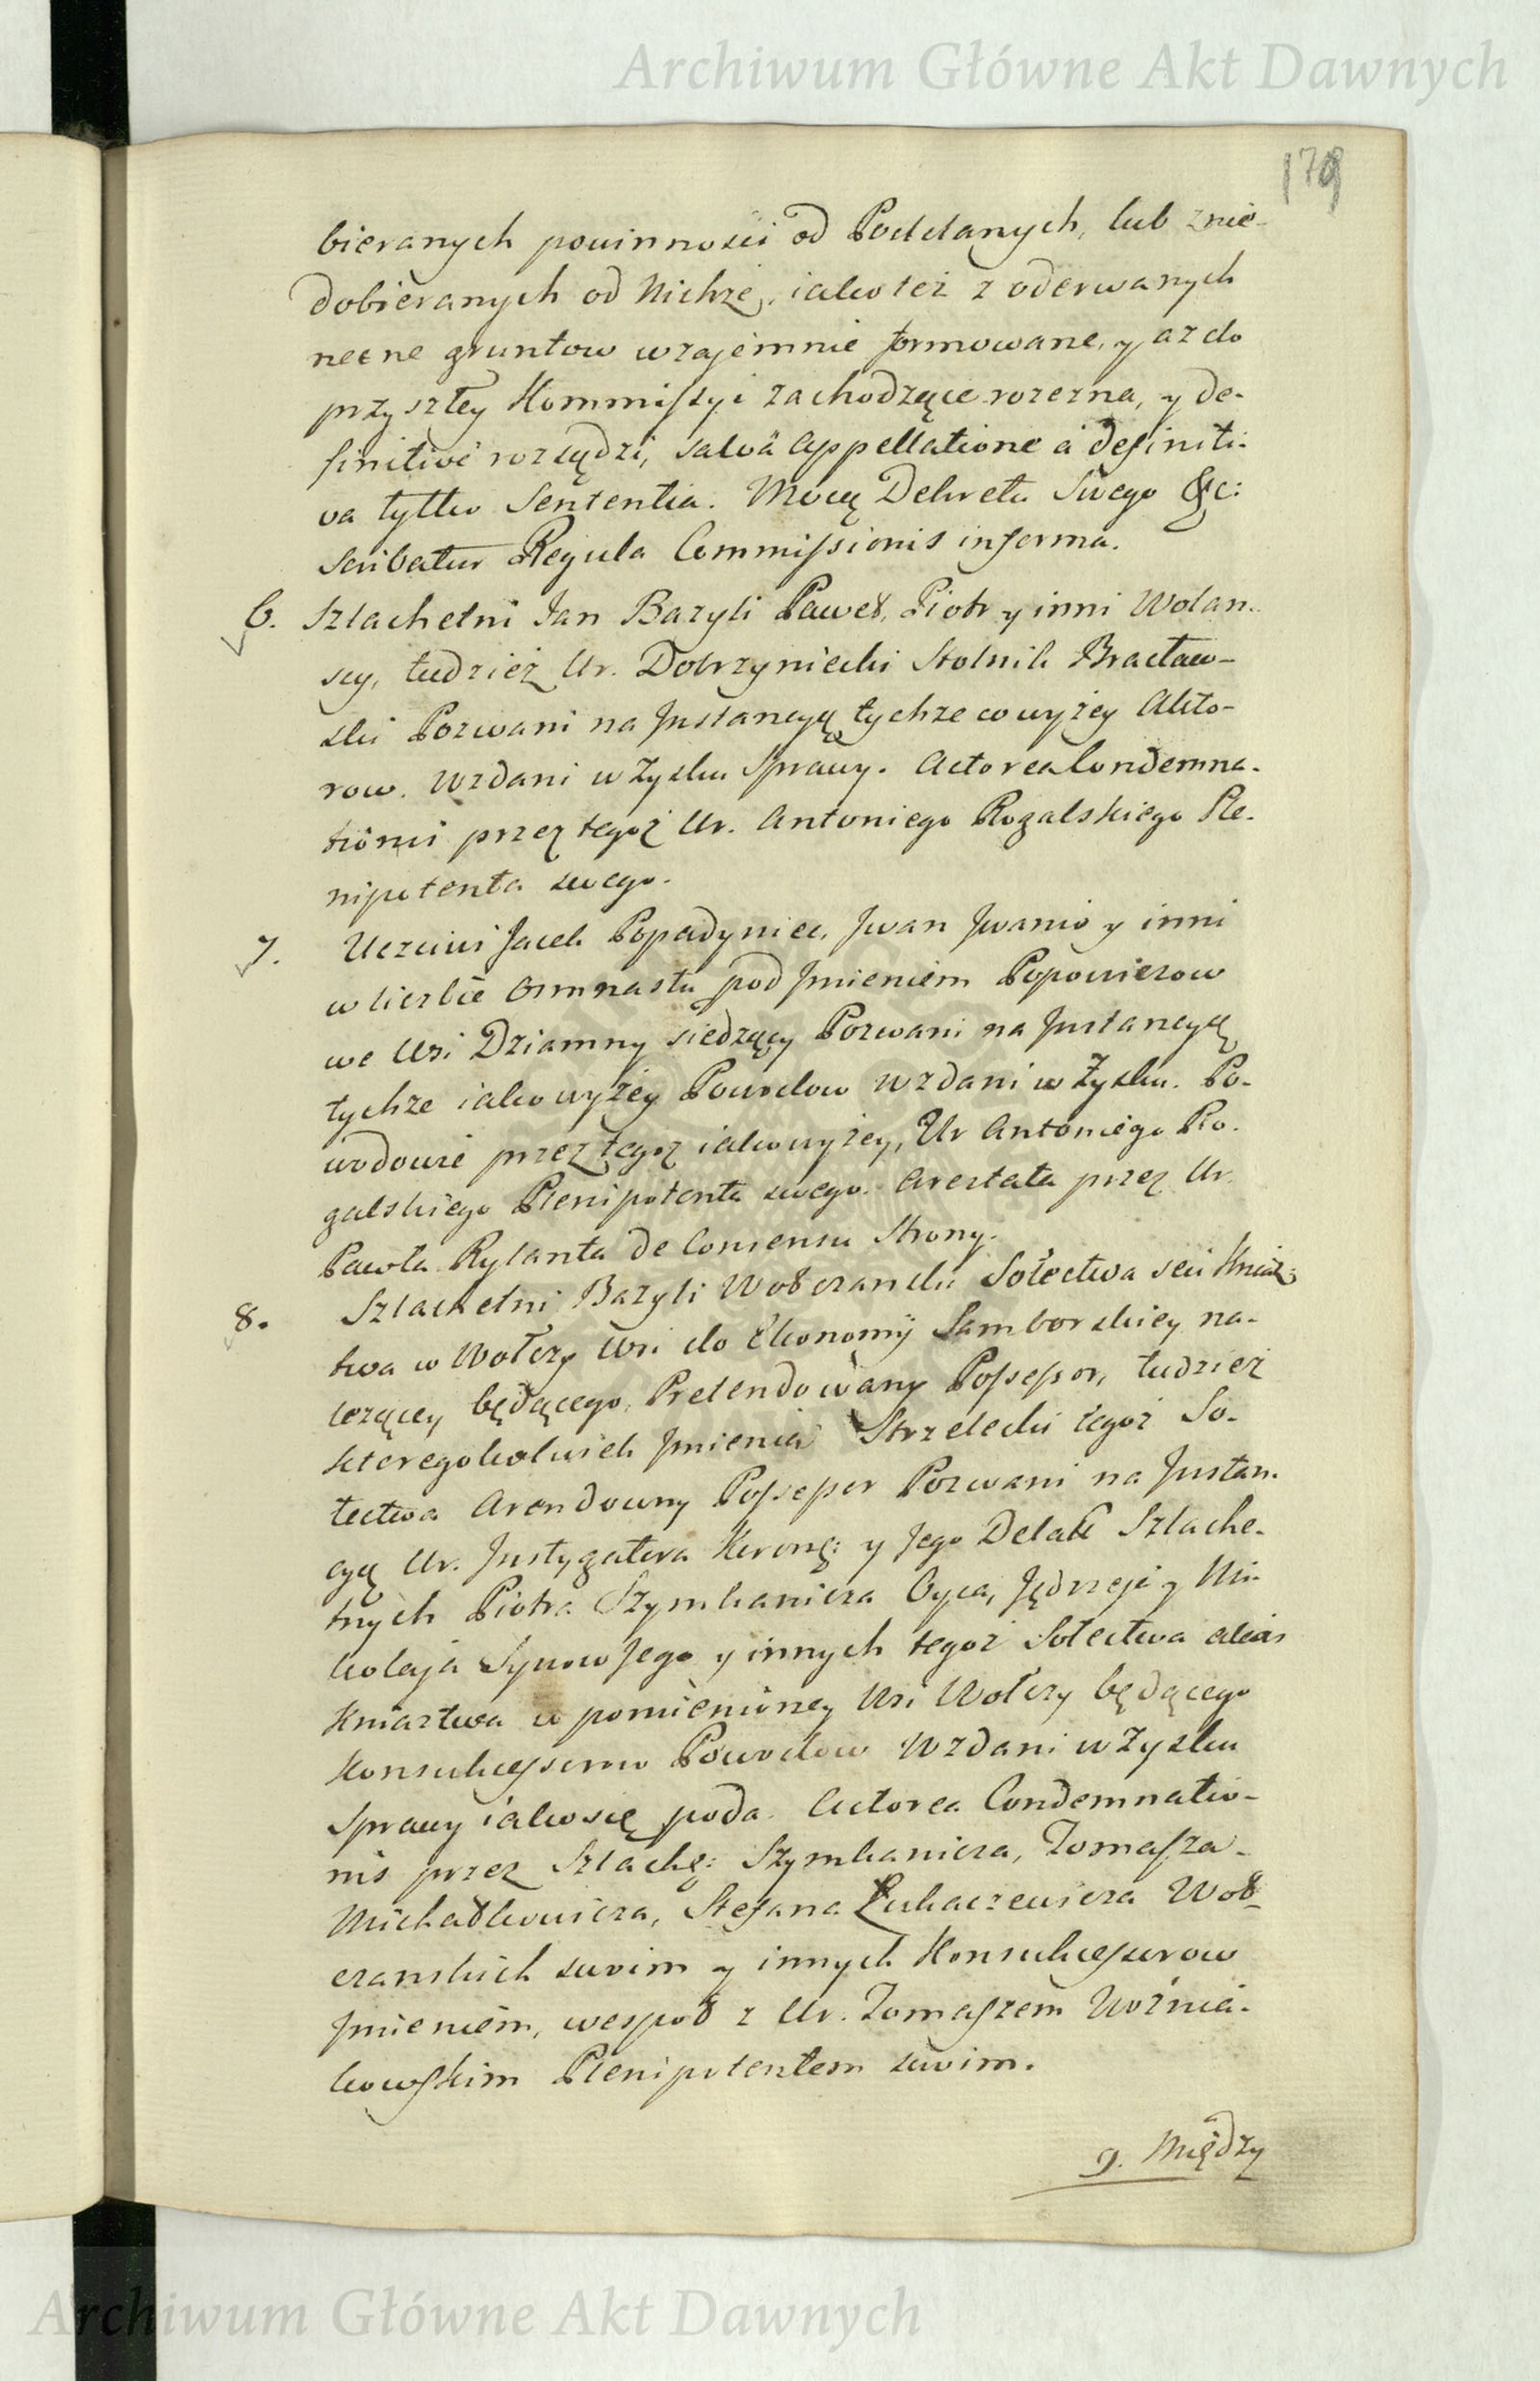 Archiwum Główne Akt Dawnych
179
bieranych powinności od Poddanych, lub znie-
dobieranych od Nichże, iako też z oderwanych
gruntow wzajemnie formowane, y aż do
przyszłey Kommissyi zachodzące rozezna, y de-
finitivé rozsądzi, salvâ Appellatione á definiti-
va tylko Sententia. Mocą Dekretu Swego &c:
Scribatur Regula Commissionis in forma.
6. Szlachetni Jan Bazyli Paweł, Piotr y inni Wolan-
scy, tudzież Ur. Dobrzyniecki Stolnik Bracław-
ski Pozwani na Jnstancyą tychże co wyżey Akto-
row. Wzdani w Zysku Sprawy. Actorea Condemna-
tionis przez tegoż Ur. Antoniego Rogalskiego Ple-
nipotenta swego.
7. Uczciwi Jacek Popadyniec, Jwan Jwanio y inni
w liczbie Osmnastu pod Jmieniem Popowiczow
we Wsi Dziamny siedzący Pozwani na Jnstancyą
tychże iako wyżey Powodow wzdani w Zysku. Po-
wodowie przez tegoż iako wyżey, Ur Antoniego Ro-
galskiego Plenipotenta swego. Arestata przez Ur.
Pawła Rylanta de Consensu Strony.
8. Szlachetni Bazyli Wołczanski Sołectwa seu Kniaź-
twa w Wołczy Wsi do Ekonomij Samborskiey na-
leżącey będącego, Pretendowany Possessor, tudzież
któregokolwiek Jmienia Strzelecki tegoż So-
łectwa Arendowny Possessor Pozwani na Jnstan-
cyą Ur. Jnstygatora Koronę: y Jego Delatt Szlache-
tnych Piotra Szymkanicza Oyca, Jędrzeja y Mi-
kołaja Synow Jego y innych tegoż Sołectwa alias
Kniaztwa w pomienioney Wsi Wołczy będącego
Konsukcessorow Powodow Wzdani w Zysku
Sprawy iako się poda. Actorea Condemnatio-
nis przez Szlachę: Szymkanicza, Tomasza
Michałkowicza, Stefana Łukaczewicza Woł-
czanskich swoim y innych Konsukcessorow
Jmieniem, wespoł z Ur. Tomaszem Woźnia-
kowskim Plenipotentem swoim.
9. Między
Archiwum Główne Akt Dawnych